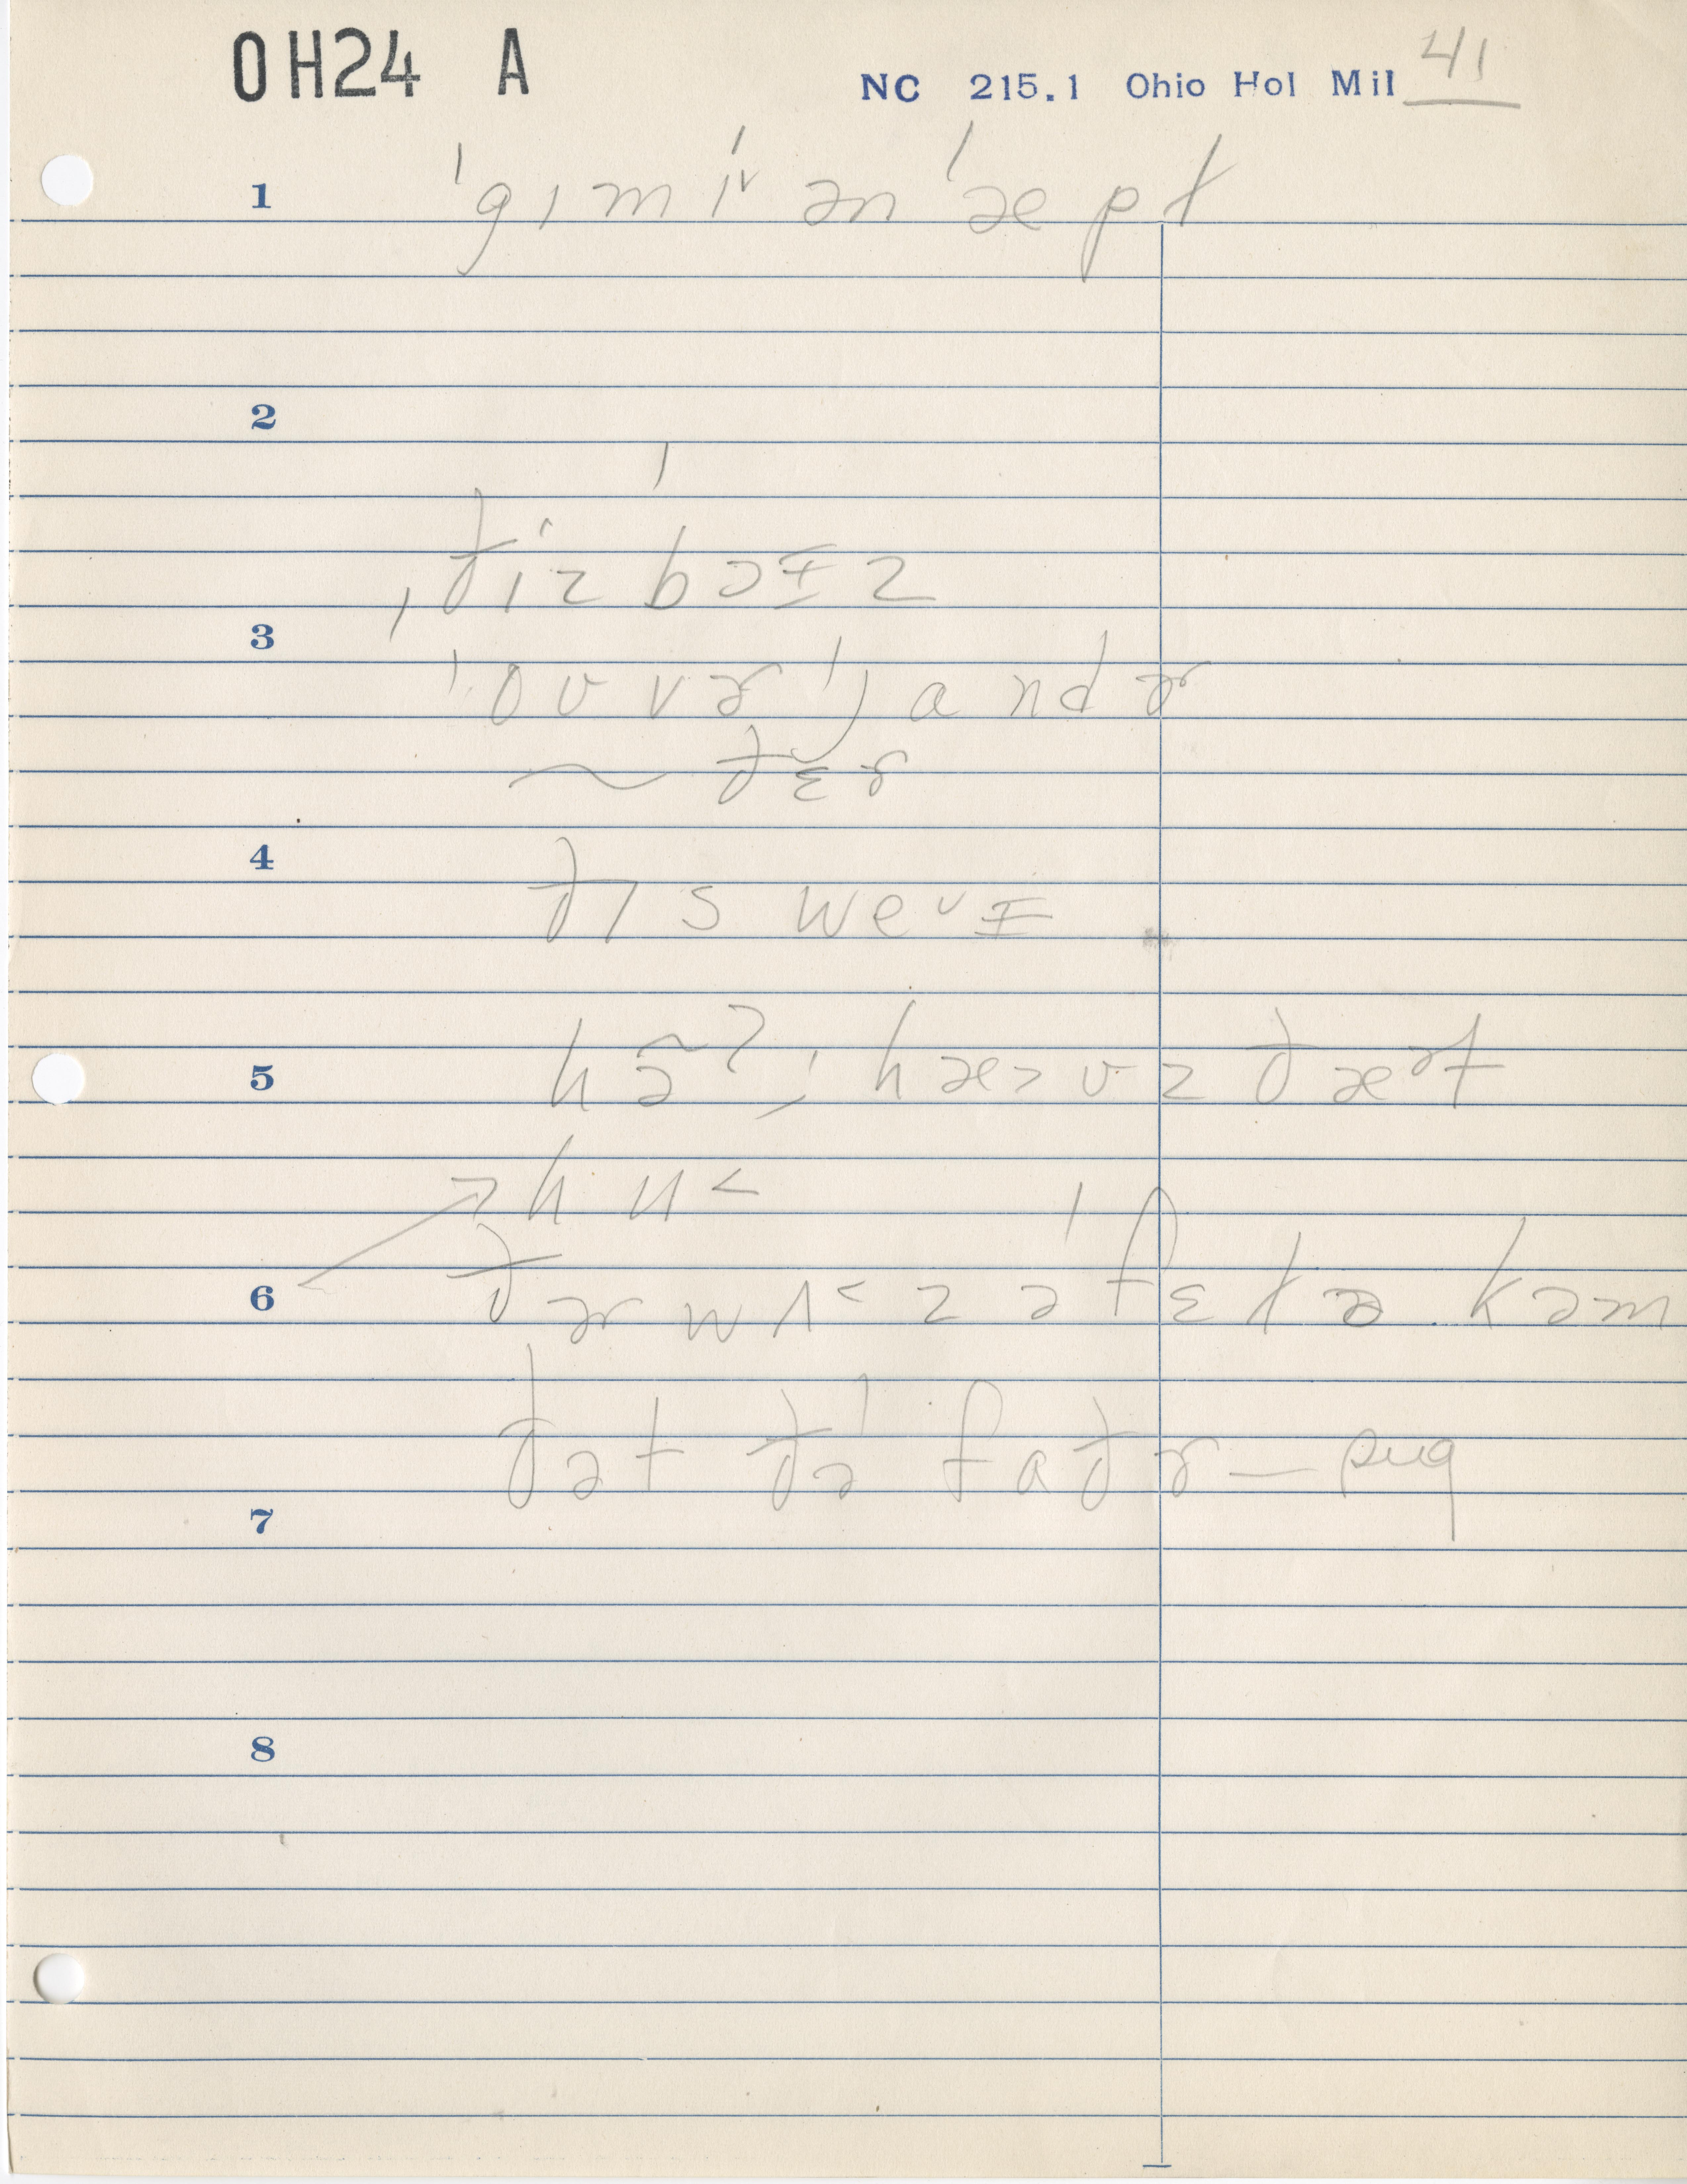 OH24 A
NC 215.1 Ohio Hol Mil 41
1 ˈgɪmi ənˈæpt
2
ˌðiz bɔɪz
3 ˈoʊvɚ, andɚ
~ ðɛɚ
4 ðɪs weɪ
5 hə̃ʔ; hæ>ʊz ðæət
hu<
6 ðɚ wʌ<z ə fɛtə kəm
ðət ðə faðɚ — sug
7
8